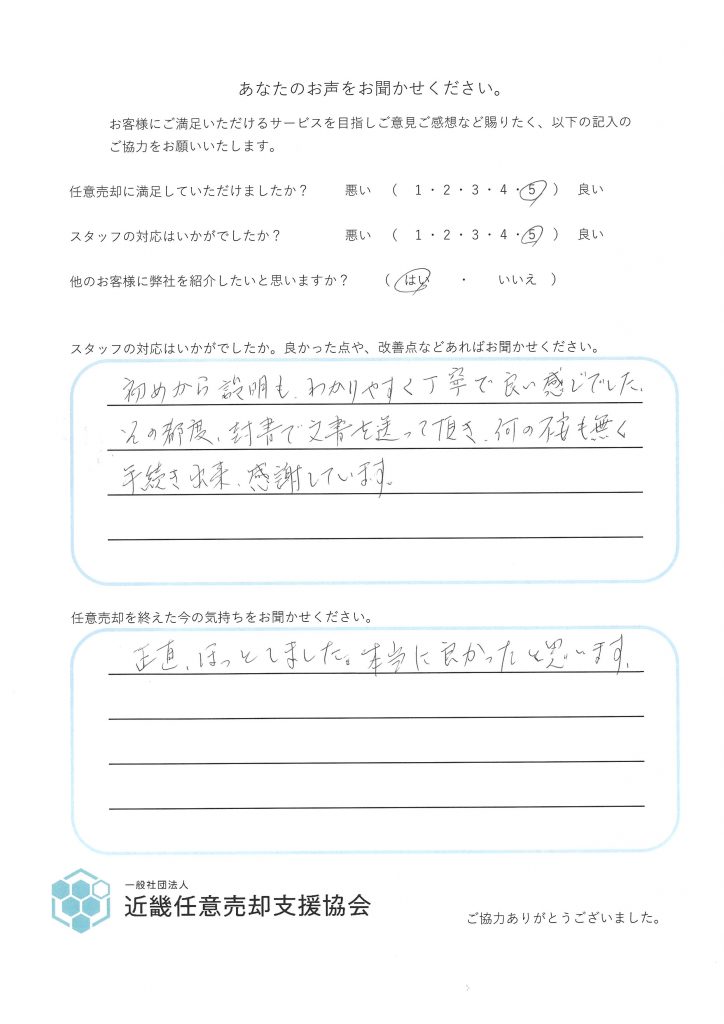 あなたのお声をお聞かせください。
お客様にご満足いただけるサービスを目指しご意見ご感想など賜りたく、以下の記入の
ご協力をお願いいたします。
任意売却に満足していただけましたか？ 悪い （ 1・2・3・4・5 ） 良い
スタッフの対応はいかがでしたか？ 悪い （ 1・2・3・4・5 ） 良い
他のお客様に弊社を紹介したいと思いますか？ （ はい ・ いいえ ）
スタッフの対応はいかがでしたか。良かった点や、改善点などあればお聞かせください。
初めから説明も、わかりやすく丁寧で良い感じでした、
その都度、封書で文書を送って頂き、何の不安も無く
手続き出来、感謝しています。
任意売却を終えた今の気持ちをお聞かせください。
正直、ほっとしました。本当に良かったと思います、
一般社団法人
近畿任意売却支援協会
ご協力ありがとうございました。